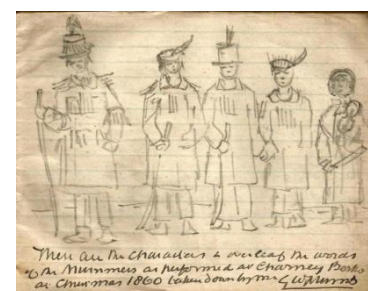 These are the Characters & overleaf the words
of the Mummers as performed at Charney Bassett
at Christmas 1860 taken down by me